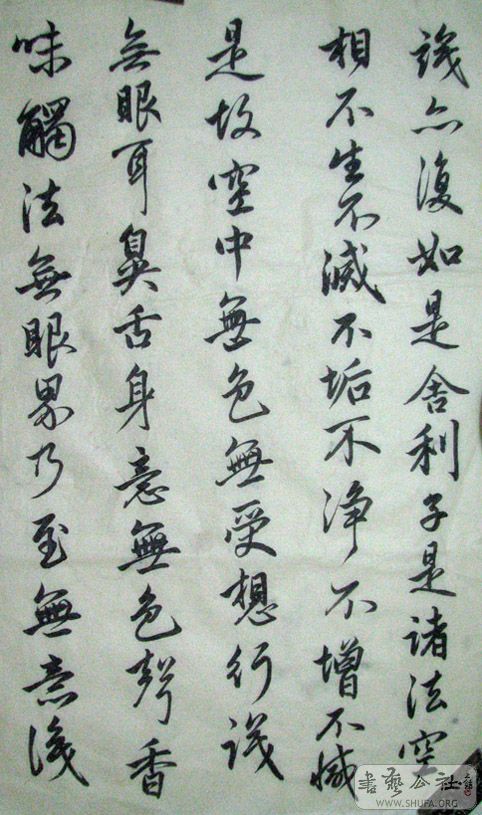 識亦復如是舍利子是諸法空
相不生不滅不垢不淨不增不減
是故空中無色無受想行識
無眼耳鼻舌身意無色聲香
味觸法無眼界乃至無意識
書藝公社
WWW.SHUFA.ORG